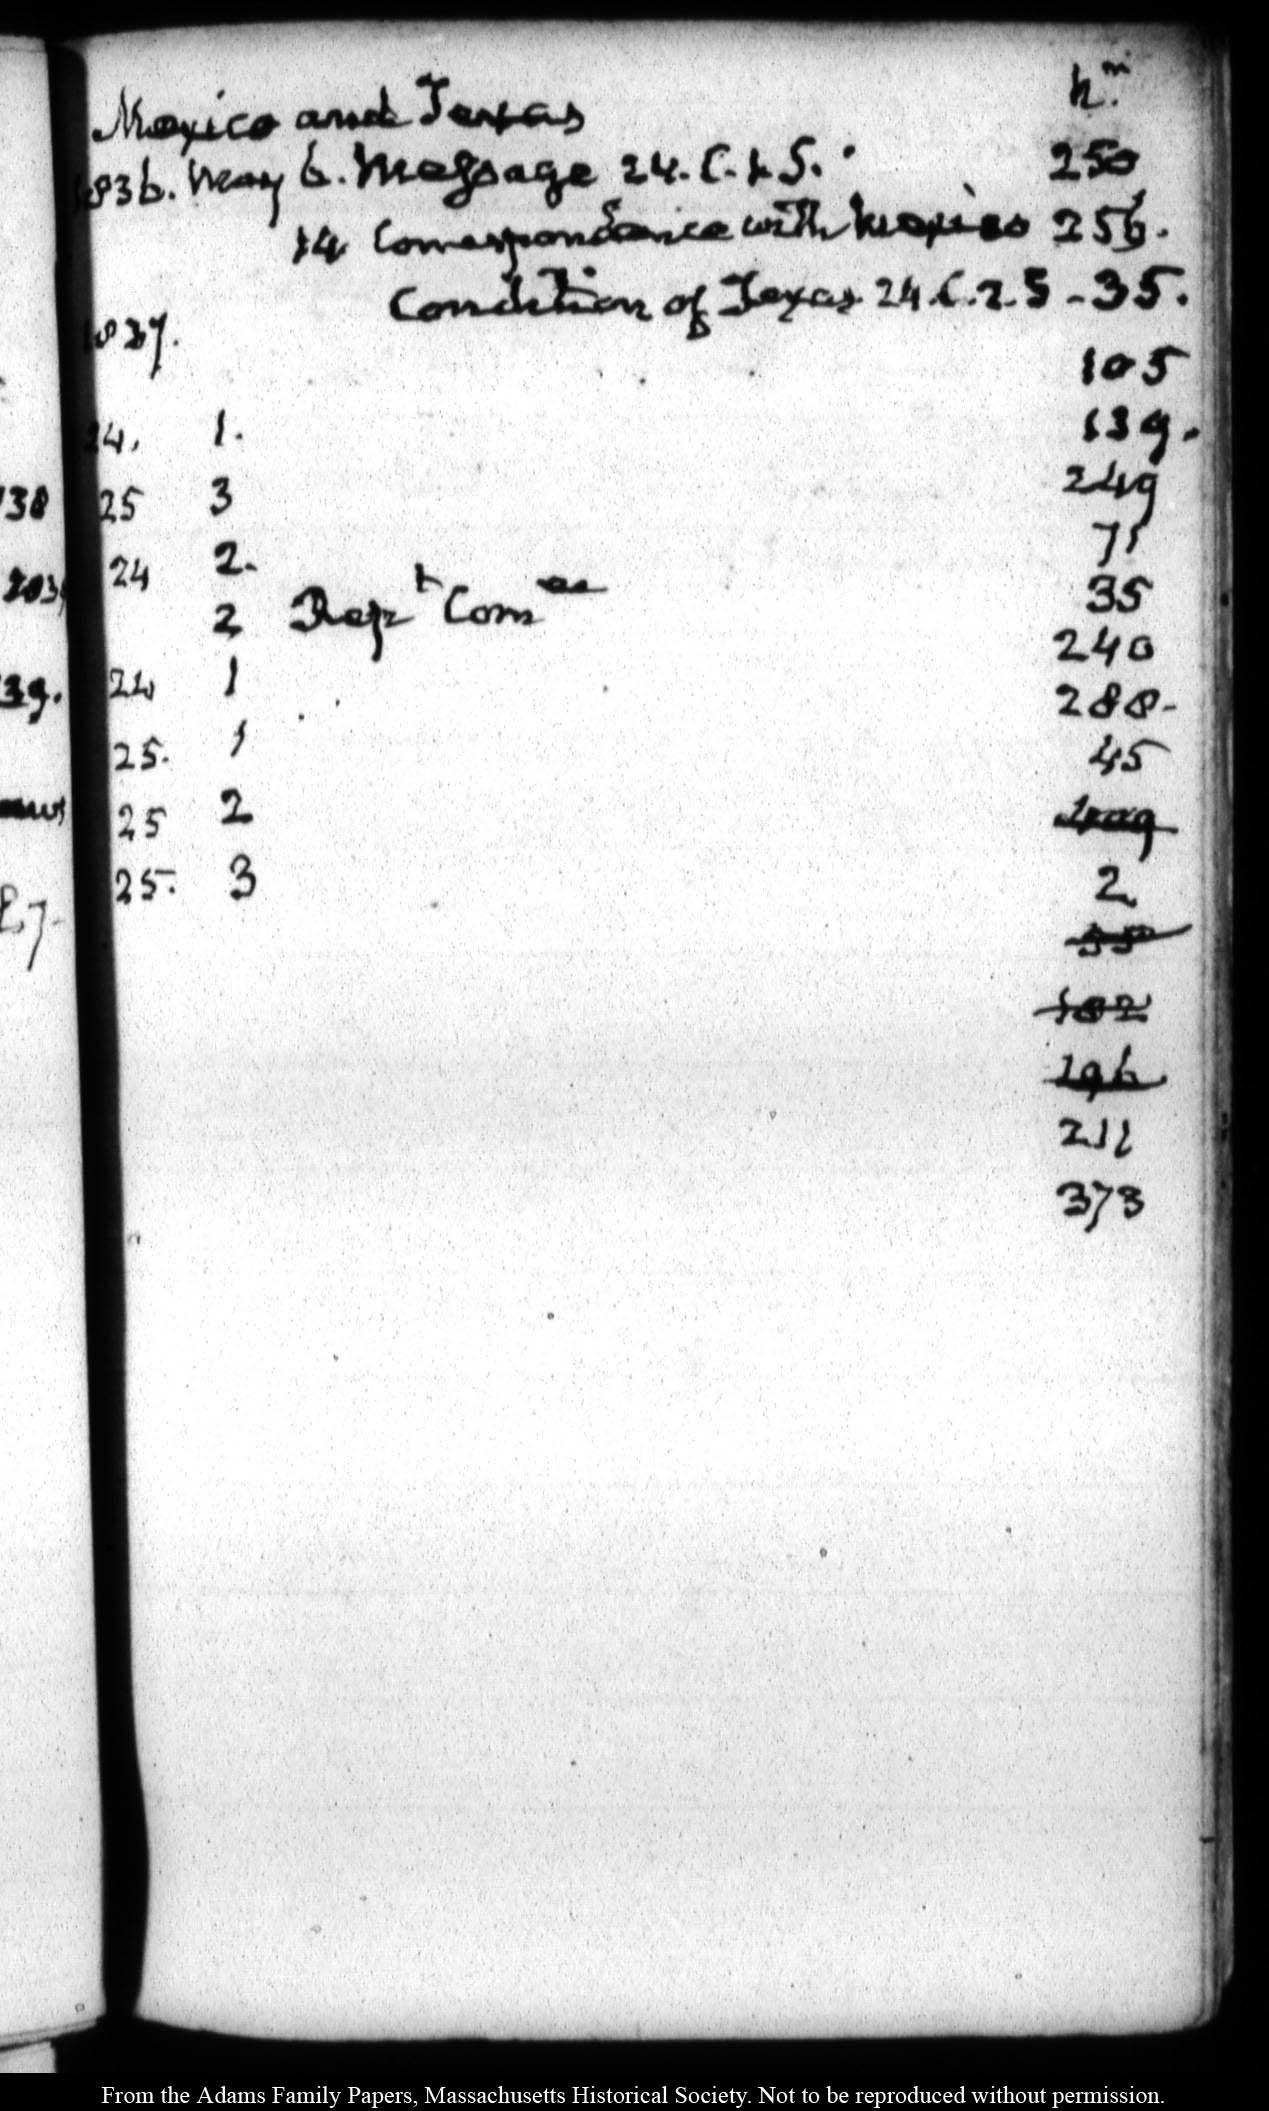 Mexico and Texas N.m
1836. May 6. Message 24. C. 1 S. 250
14 Correspondence with Mexico 256.
Condition of Texas 24. C. 2. S - 35.
1837.
105
24. 1. 139.
38 25 3 249
24 2. 71
2 Rept Comee 35
240
39. 24 1 288-
25. 1 45
25 2
25. 3 2
55
182
196
211
373
From the Adams Family Papers, Massachusetts Historical Society. Not to be reproduced without permission.